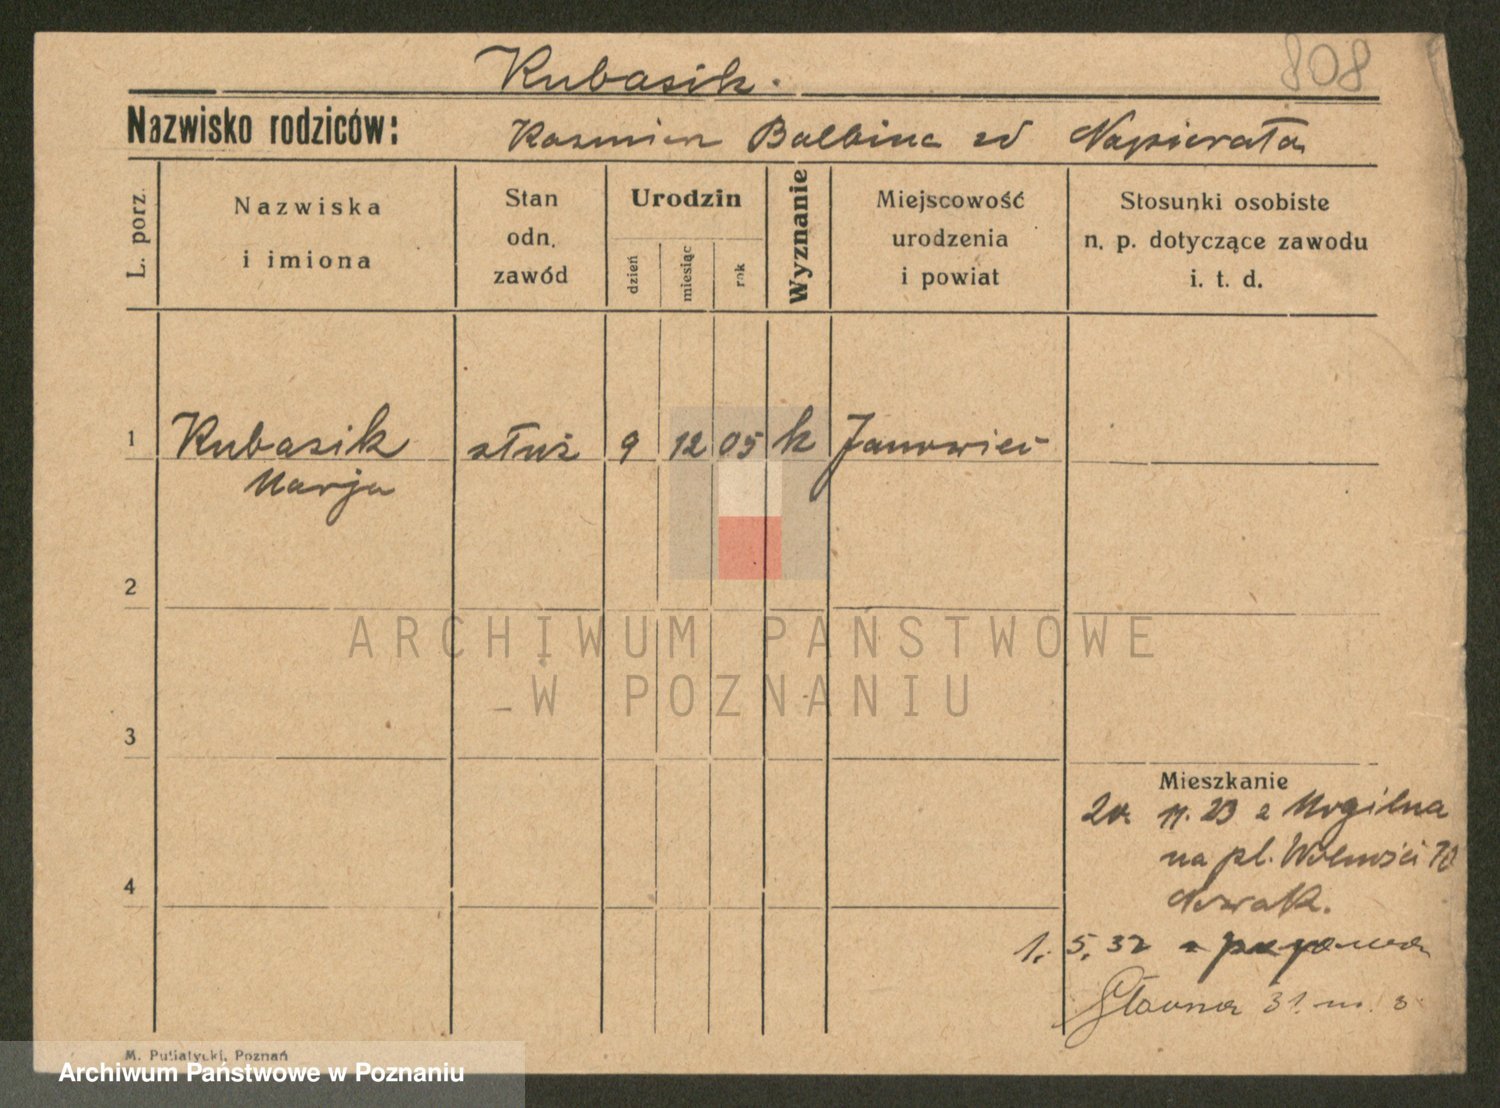 808
Kubasik.
Nazwisko rodziców: Kazmierz Balbina zd Napierała
L. porz.
Nazwiska
i imiona
Stan
odn.
zawód
Urodzin
dzień
miesiąc
rok
Wyznanie
Miejscowość
urodzenia
i powiat
Stosunki osobiste
n. p. dotyczące zawodu
i. t. d.
1 Kubasik służ 9 12 05 k Janowiec
Marja
2
ARCHIWUM PAŃSTWOWE
W POZNANIU
3
Mieszkanie
20. 11. 23 z Mogilna
na pl. Wolności
4
Nowak.
1. 5. 32
Główna 31. m. 3
M. Putiatycki, Poznań
Archiwum Państwowe w Poznaniu